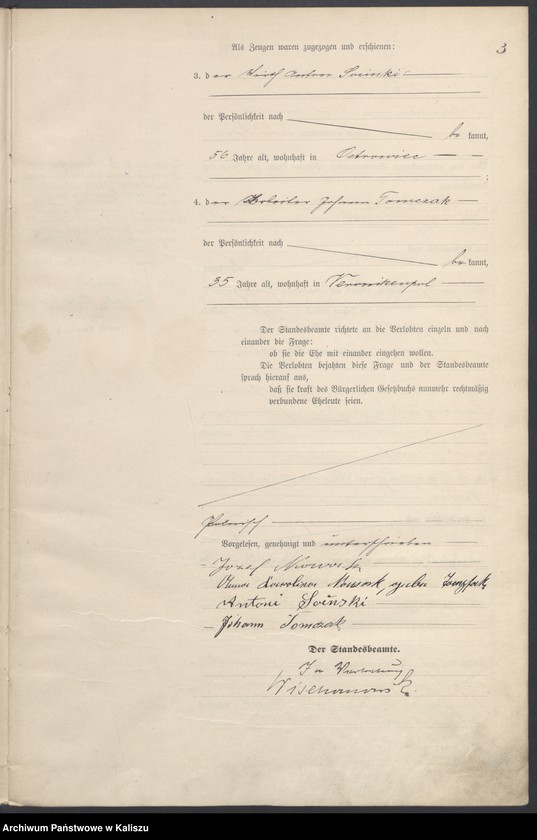 3
Als Zeugen waren zugezogen und erschienen:
3. der Wirth Anton Soinski
der Persönlichkeit nach
be kannt,
56 Jahre alt, wohnhaft in Ostrowiec
;
4. der Arbeiter Johann Tomczak
der Persönlichkeit nach
be kannt,
35 Jahre alt, wohnhaft in Veronikenpol
Der Standesbeamte richtete an die Verlobten einzeln und nach
einander die Frage:
ob sie die Ehe mit einander eingehen wollen.
Die Verlobten bejahten diese Frage und der Standesbeamte
sprach hierauf aus,
daß sie kraft des Bürgerlichen Gesetzbuchs nunmehr rechtmäßig
verbundene Eheleute seien.
Polnisch
Vorgelesen, genehmigt und unterschrieben
Jozef Nowak
Nowak, geb.
Antoni Soinski
Johann Tomczak
Der Standesbeamte.
In Vertretung